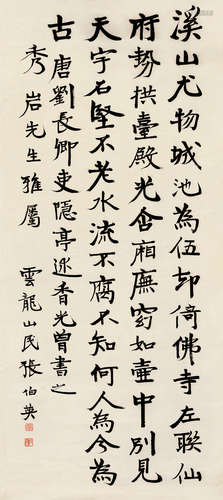 溪山尤物城池為伍却倚佛寺左聯仙
府勢拱臺殿光含廂廡窈如壺中別見
天宇石堅不老水流不腐不知何人為今為
古唐劉長卿吏隱亭述香光曾書之
秀岩先生雅屬 雲龍山民張伯英